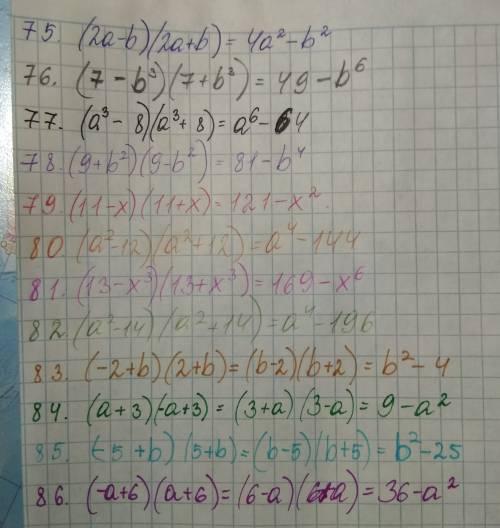 75. (2a-b)(2a+b) = 4a²-b²
76. (7-b³)(7+b³) = 49-b⁶
77. (a³-8)(a³+8) = a⁶-64
78. (9+b²)(9-b²) = 81-b⁴
79. (11-x)(11+x) = 121-x².
80. (a²-12)(a²+12) = a⁴-144
81. (13-x³)(13+x³) = 169-x⁶
82. (a²-14)(a²+14) = a⁴-196
83. (-2+b)(2+b) = (b-2)(b+2) = b²-4
84. (a+3)(-a+3) = (3+a)(3-a) = 9-a²
85. (-5+b)(5+b) = (b-5)(b+5) = b²-25
86. (-a+6)(a+6) = (6-a)(6+a) = 36-a²